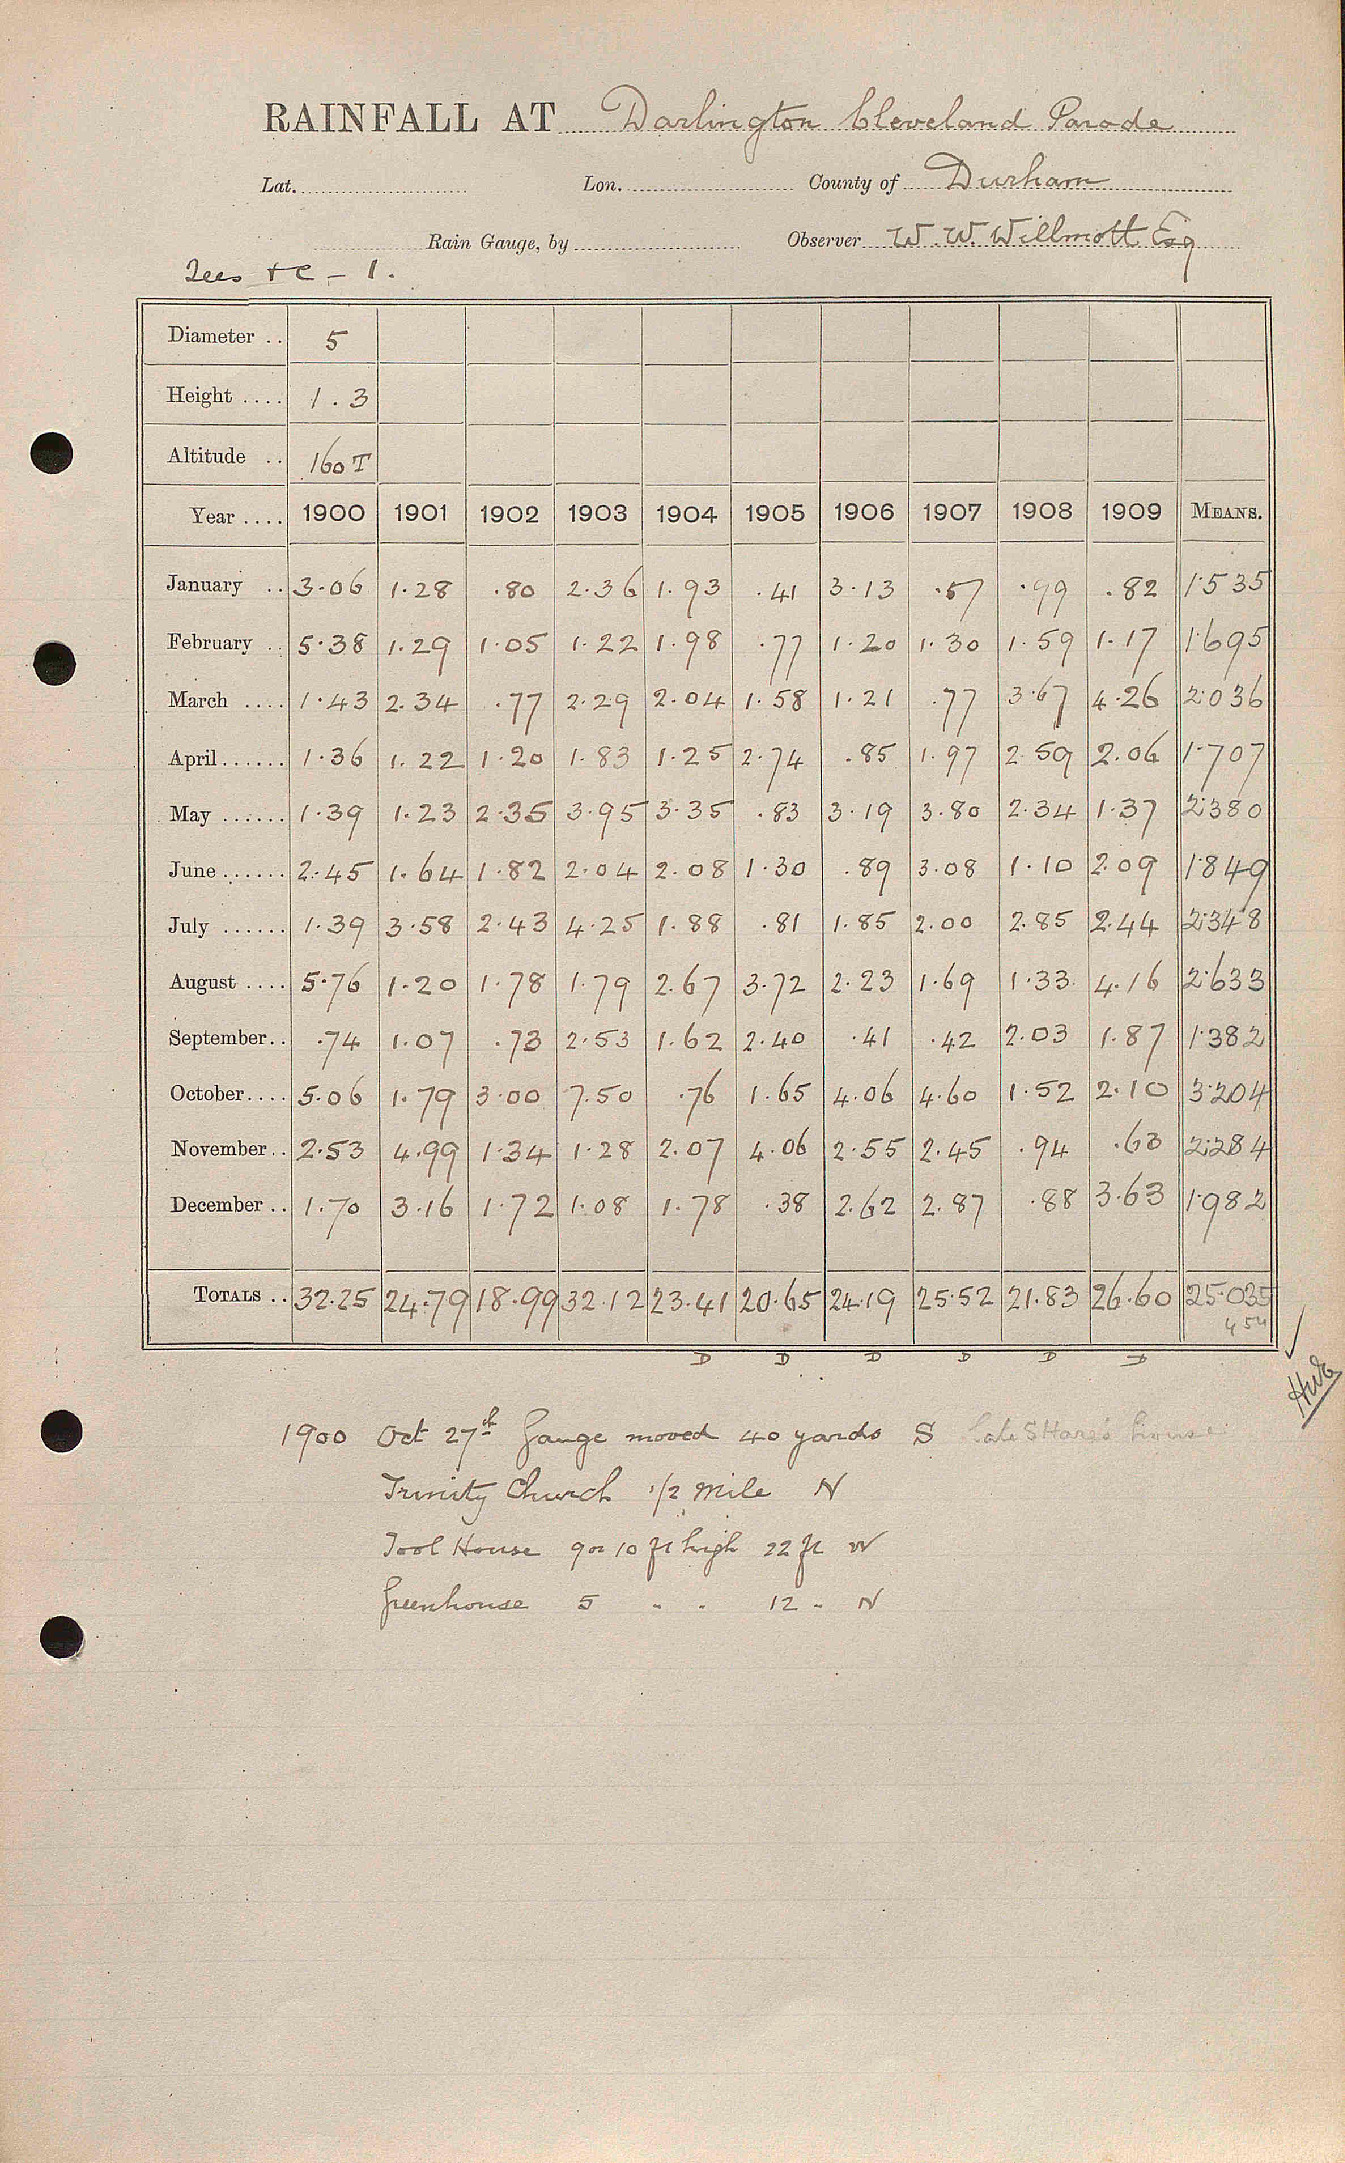 RAINFALL AT Darlington Cleveland Parade
Lat. Lon. County of Durham
Rain Gauge, by Observer W. W. Willmott Esq
Tees + C - 1.
Diameter .. 5
Height .... 1.3
Altitude .. 160 T
Year .... 1900 1901 1902 1903 1904 1905 1906 1907 1908 1909 MEANS.
January .. 3.06 1.28 .80 2.36 1.93 .41 3.13 .57 .99 .82 1.535
February .. 5.38 1.29 1.05 1.22 1.98 .77 1.20 1.30 1.59 1.17 1.695
March .... 1.43 2.34 .77 2.29 2.04 1.58 1.21 .77 3.67 4.26 2.036
April...... 1.36 1.22 1.20 1.83 1.25 2.74 .85 1.97 2.59 2.06 1.707
May ...... 1.39 1.23 2.35 3.95 3.35 .83 3.19 3.80 2.34 1.37 2.380
June ...... 2.45 1.64 1.82 2.04 2.08 1.30 .89 3.08 1.10 2.09 1.849
July ...... 1.39 3.58 2.43 4.25 1.88 .81 1.85 2.00 2.85 2.44 2.348
August .... 5.76 1.20 1.78 1.79 2.67 3.72 2.23 1.69 1.33 4.16 2.633
September.. .74 1.07 .73 2.53 1.62 2.40 .41 .42 2.03 1.87 1.382
October.... 5.06 1.79 3.00 7.50 .76 1.65 4.06 4.60 1.52 2.10 3.204
November.. 2.53 4.99 1.34 1.28 2.07 4.06 2.55 2.45 .94 .63 2.284
December .. 1.70 3.16 1.72 1.08 1.78 .38 2.62 2.87 .88 3.63 1.982
TOTALS .. 32.25 24.79 18.99 32.12 23.41 20.65 24.19 25.52 21.83 26.60 25.035
D D D D D D
1900 Oct 27th Gauge moved 40 yards S house
Trinity Church 1/2 mile N
Tool House 9 or 10 ft high 22 ft W
Greenhouse 5 " " 12 " N